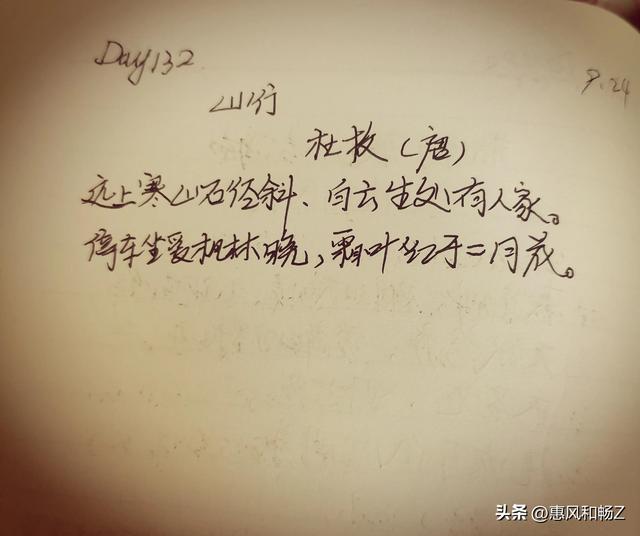 Day132
9.24
山行
杜牧（唐）
远上寒山石径斜、白云生处有人家。
停车坐爱枫林晚，霜叶红于二月花。
头条 @惠风和畅Z